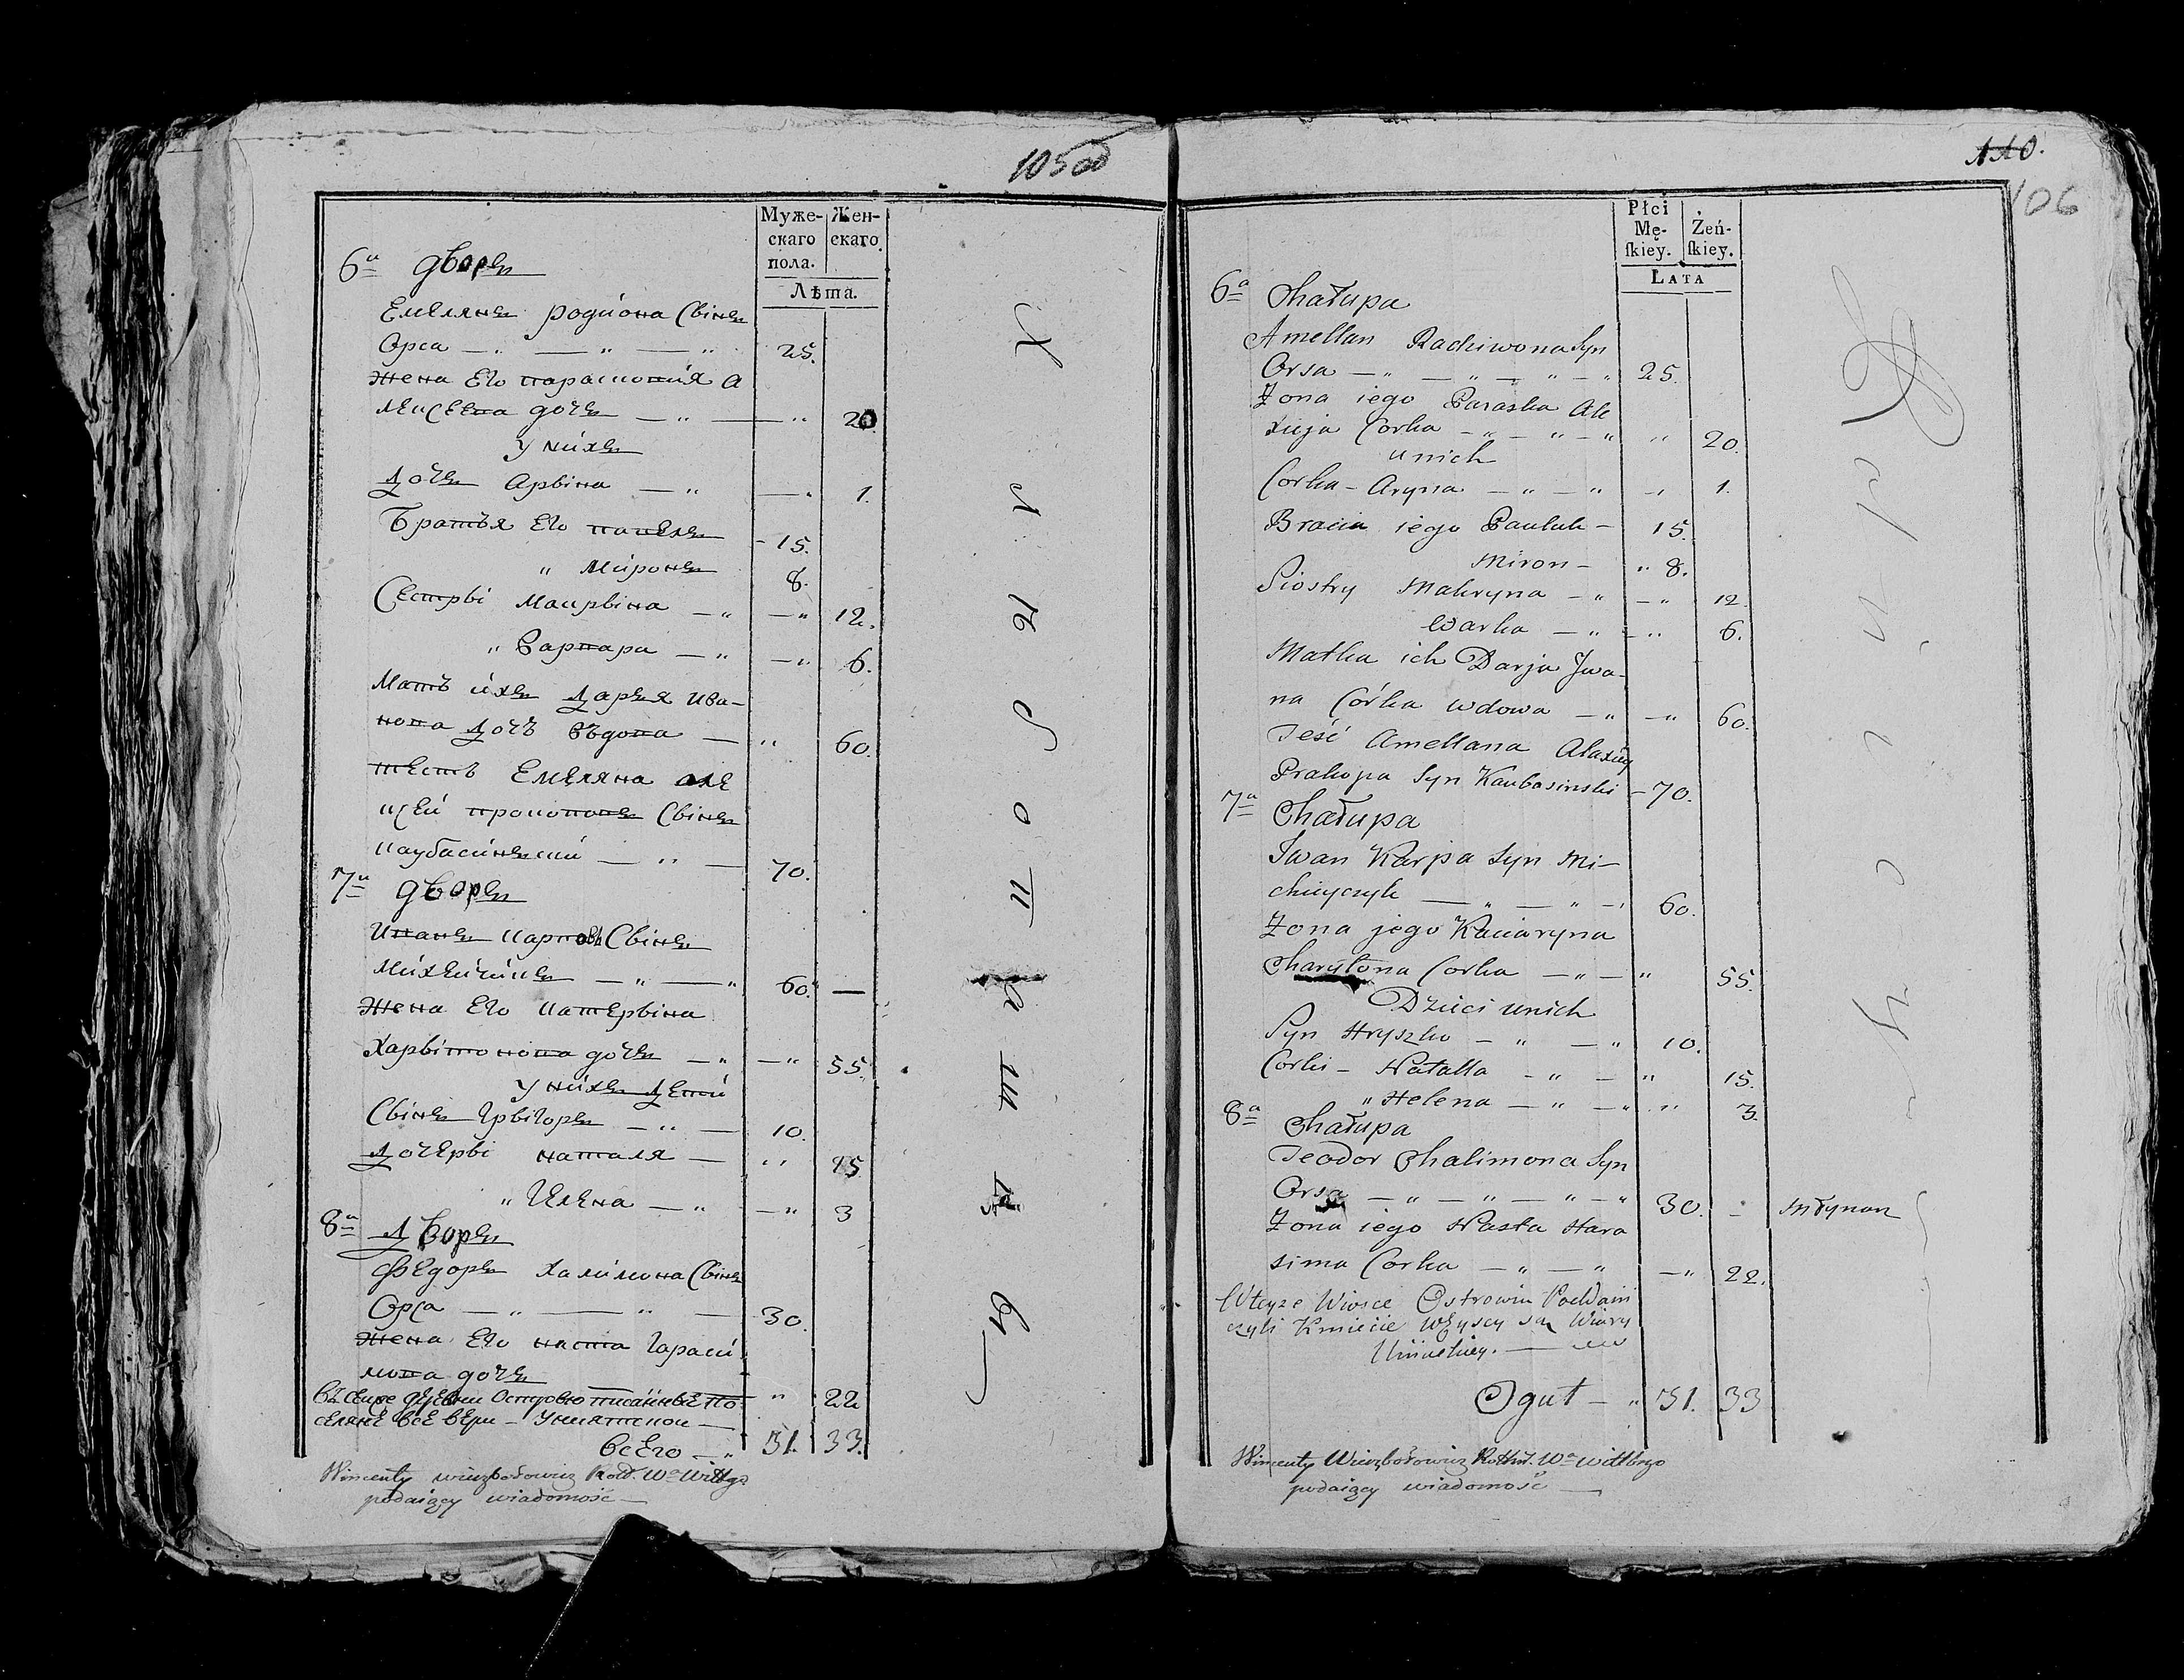 105об
Муже-
скаго
пола.
Жен-
скаго.
Лѣта.
6я дворъ
Емелянъ родіона Сынъ
Орса — „ — „ — „ 25.
жена Его парасковія А
лексеева дочъ — „ — „ 20.
у ніхъ
Дочъ Арына — „ — „ 1.
Братья Его павелъ - 15.
„ Міронъ 8.
Сестры Макрына — „ — „ 12.
„ Варвара — „ — „ 6.
Мать іхъ Дарья ива-
нова Дочь въдова — „ 60.
тесть Емеляна але
ксей прокоповъ Сынъ
каубасінъскій — „ — 70.
7я дворъ
Иванъ карповъ Сынъ
Міхейчікъ — „ — „ 60. —
жена Его катерына
Харытонова дочъ — „ — „ 55.
у ніхъ Деті
Сынъ Грыгоръ — „ — 10.
Дочеры наталя — „ 15
„ Гелена — „ — „ 3
8я Дворъ
Федоръ халимона Сынъ
Орса — „ — „ — 30.
жена Его наста Гарасі
мова дочъ „ 22
въ сеиже деревни Острово писанные по
селяне все веры - Униятской —
всего — „ 51. 33.
Wincenty Wierzbołowicz Rotm. Wa Wittgo
podaiący wiadomość —
Х л ѣ б о п а ш ц ы
110.
106
Płci
Mę-
skiey.
Żeń-
skiey.
Lata
6a Chałupa
Amellan Radziwona Syn
Orsa — „ — „ — „ — „ 25.
Żona iego Paraska Ale
xieja Corka — „ — „ — „ „ 20.
u nich
Corka - Aryna — „ — „ - „ 1.
Bracia iego Pauluk — 15.
Miron — „ 8.
Siostry Makryna — „ — „ 12.
Warka — „ — „ 6.
Matka ich Darja Jwa-
na Córka wdowa — „ — „ 60.
Teść Amellana Alaxiey
Prakopa Syn Kaubasinski — 70.
7a Chałupa
Iwan Karpa Syn Mi-
chieyczyk — „ — „ — „ 60.
Żona jego Kaciaryna
Charytona Corka — „ — „ 55.
Dzieci u nich
Syn Hryszko — „ — „ 10.
Corki - Natalla — „ — „ 15.
„ Helena — „ — „ „ 3.
8a Chałupa
Teodor Chalimona Syn
Orsa — „ — „ — „ — „ 30. - Młynarz
Żona iego Nasta Hara
sima Corka — „ — „ — „ 22.
W teyże Wiosce Ostrowiu Poddani
czyli Kmiecie wszyscy są Wiary
Uniackiey. —
Oguł — „ 51. 33
Wincenty Wierzbołowicz Rotm. Wa Wittbgo
podaiący wiadomość —